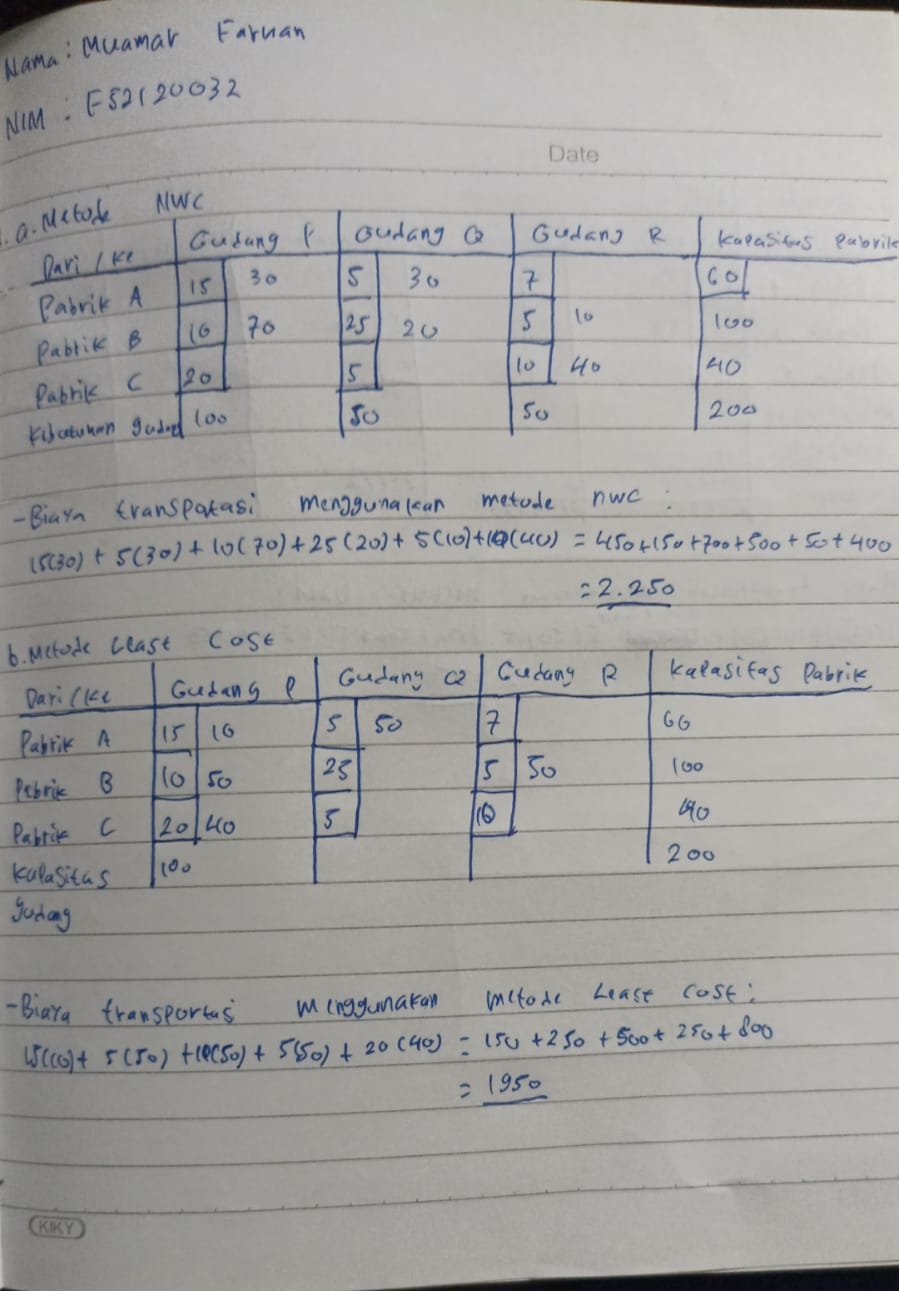 Nama : Muamar Faruan
NIM : F52120032
Date
1. a. Metode NWC
Dari / Ke Gudang P Gudang Q Gudang R Kapasitas Pabrik
Pabrik A 15 30 5 30 7 60
Pabrik B 10 70 25 20 5 10 100
Pabrik C 20 5 10 40 40
Kebutuhan gudang 100 50 50 200
- Biaya transpotasi menggunakan metode nwc :
15(30) + 5(30) + 10(70) + 25(20) + 5(10) + 10(40) = 450 + 150 + 700 + 500 + 50 + 400
= 2.250
b. Metode Least Cost
Dari / Ke Gudang P Gudang Q Gudang R Kapasitas Pabrik
Pabrik A 15 10 5 50 7 60
Pabrik B 10 50 25 5 50 100
Pabrik C 20 40 5 10 40
Kapasitas 100 200
gudang
- Biaya transportasi menggunakan metode Least Cost :
15(10) + 5(50) + 10(50) + 5(50) + 20(40) = 150 + 250 + 500 + 250 + 800
= 1950
KIKY